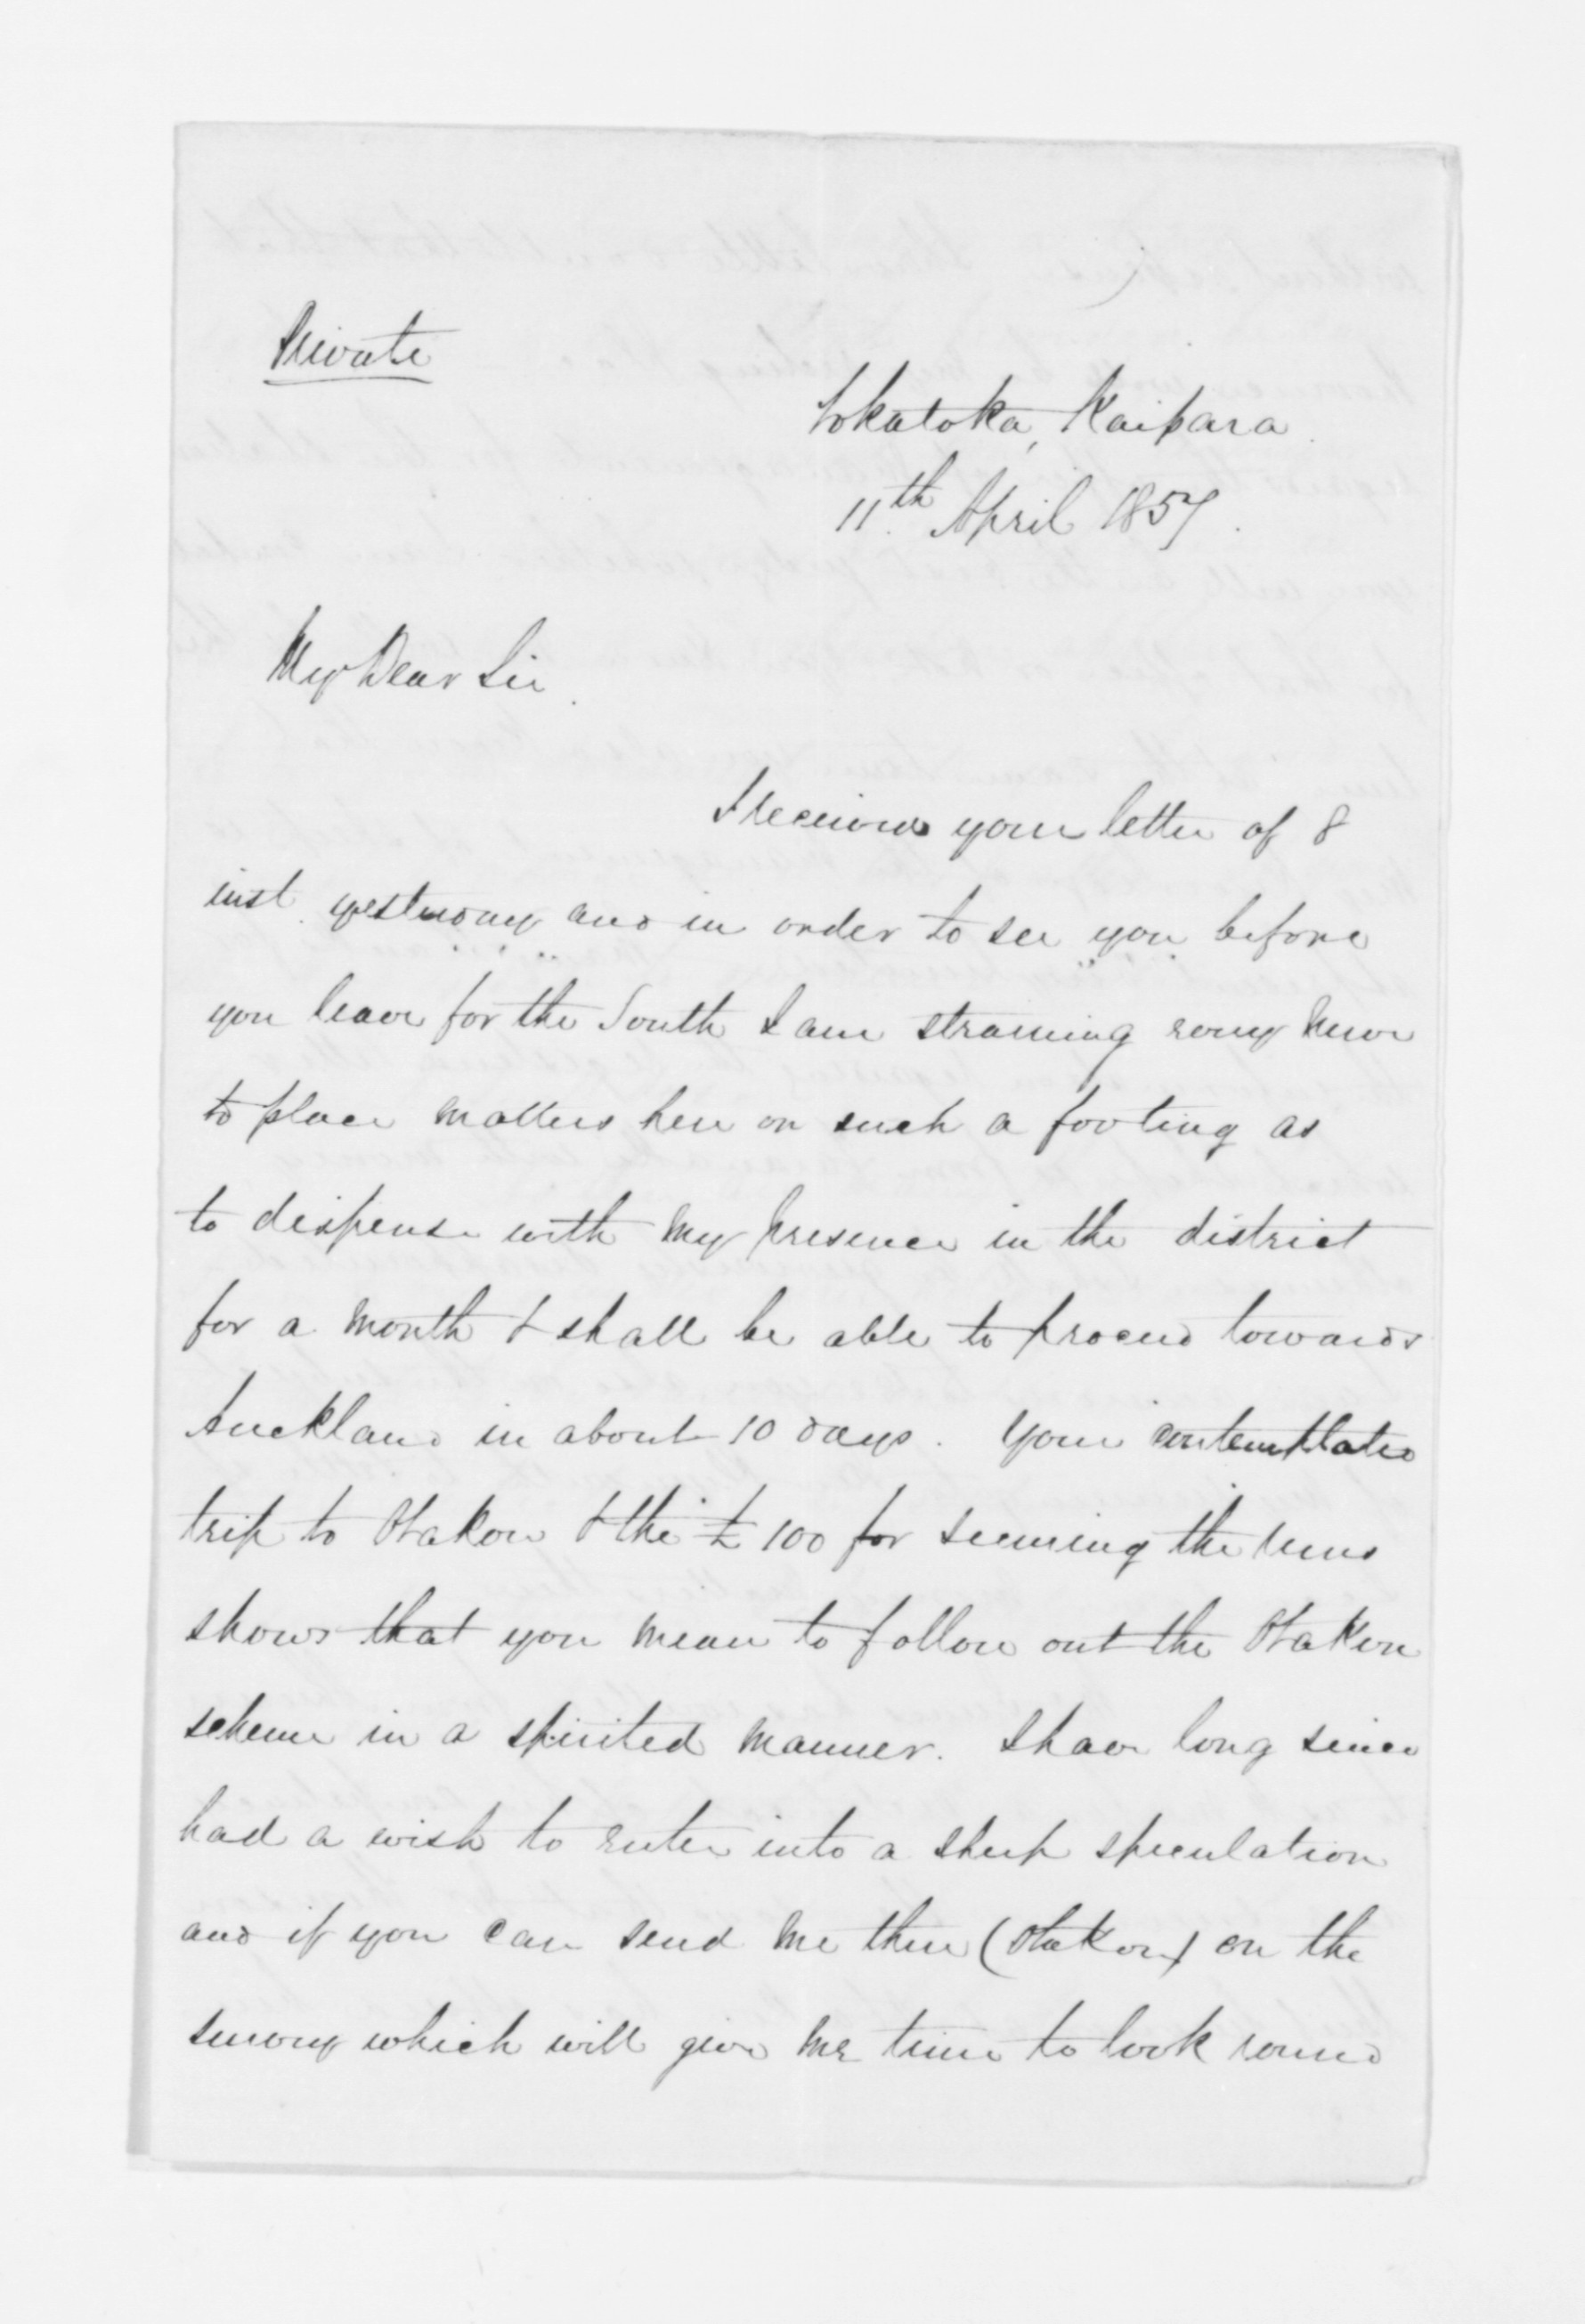 Private
Tokatoka, Kaipara.
11th. April 1857.
My Dear Sir.
I received your letter of 8
inst. yesterday and in order to see you before
you leave for the South I am straining every nerve
to place matters here on such a footing as
to dispense with my presence in the district
for a month & shall be able to proceed towards
Auckland in about 10 days. Your contemplated
trip to Otakou & the £100 for securing the runs
shows that you mean to follow out the Otakou
scheme in a spirited manner. I have long since
had a wish to enter into a sheep speculation
and if you can send me there (Otakou) on the
survey which will give me time to look round